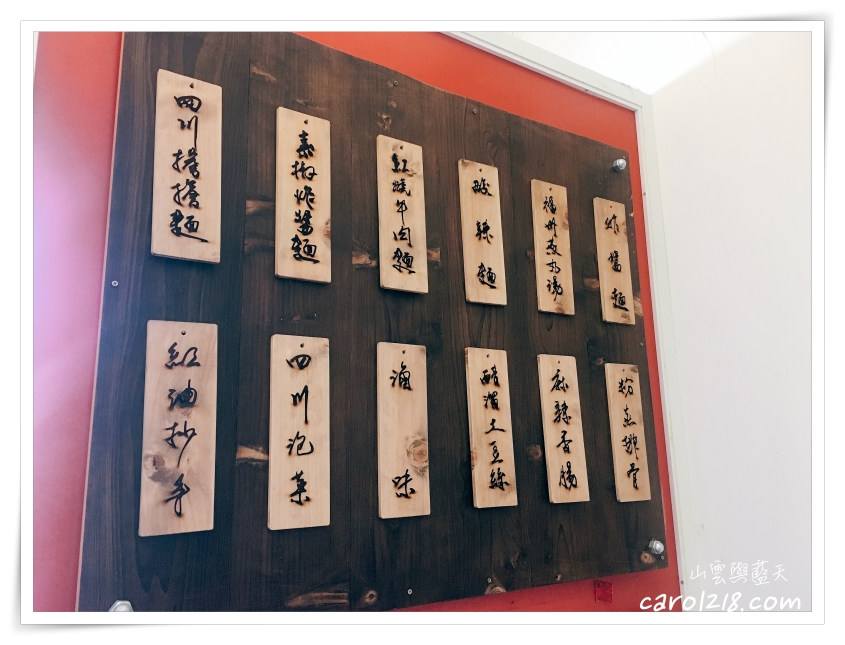 四川擔擔麵
素椒炸醬麵
紅燒牛肉麵
酸辣麵
福州燕丸湯
炸醬麵
紅油抄手
四川泡菜
滷味
醋溜土豆絲
麻辣香腸
粉蒸排骨
山雲與藍天
carol218.com